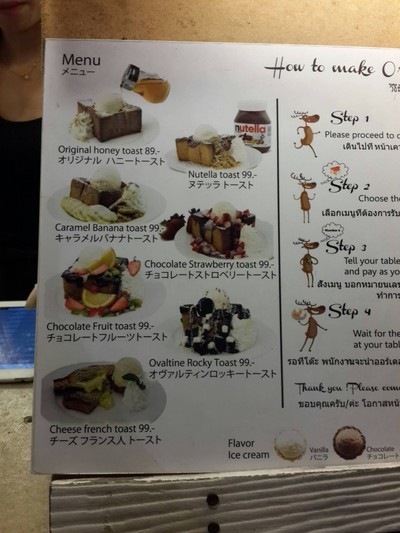 Menu
メニュー
Original honey toast 89.-
オリジナル ハニートースト
nutella
Nutella toast 99.-
ヌテッラ トースト
Caramel Banana toast 99.-
キャラメルバナナトースト
Chocolate Strawberry toast 99.-
チョコレートストロベリートースト
Chocolate Fruit toast 99.-
チョコレートフルーツトースト
Ovaltine Rocky Toast 99.-
オヴァルティンロッキートースト
Cheese french toast 99.-
チーズ フランス人 トースト
Flavor
Ice cream
Vanilla
バニラ
Chocolate
チョコレート
How to make O
Step 1
Please proceed to
เดินไปที่ หน้าเค
Step 2
Choose the
เลือกเมนูที่ต้องการรับ
Step 3
Tell your table
and pay as yo
สั่งเมนู บอกหมายเลข
ทำการ
Step 4
Wait for the
at your table
รอที่โต๊ะ พนักงานจะนำออร์เด
Thank you! Please come
ขอบคุณครับ/ค่ะ โอกาสหน้